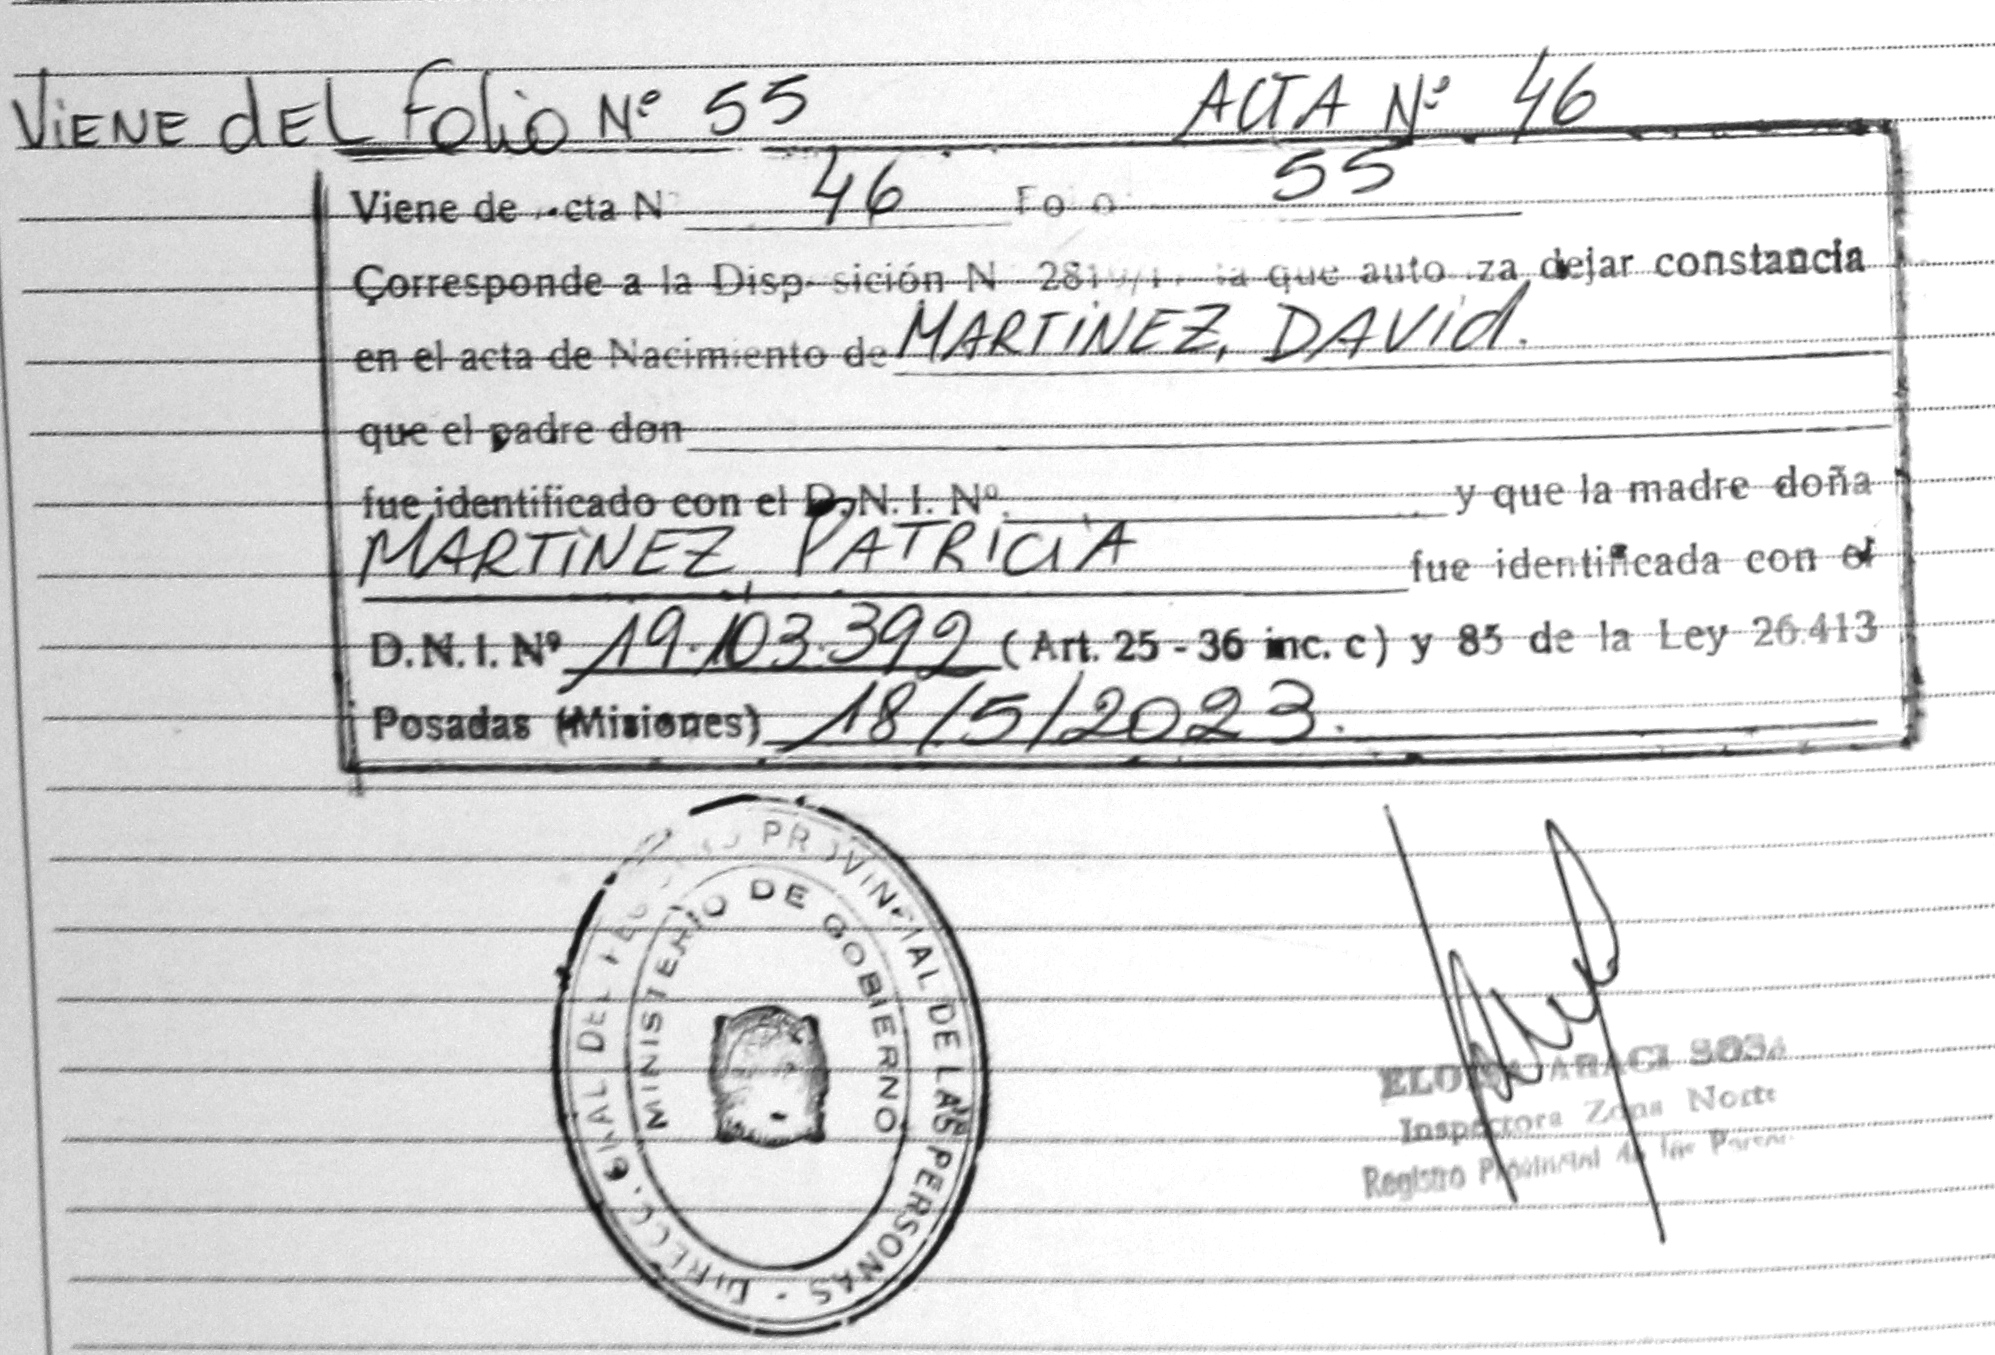 ViENE dEL folio Nº 55 ACTA Nº 46
Viene de N 46 55
Corresponde a la que dejar constancia
en el acta de Nacimiento de MARTiNEZ, DAVid.
que el padre don
fue identificado con el D.N.I. Nº y que la madre doña
MARTiNEZ, PATRiCiA fue identificada con el
D.N.I. Nº 19.103.392 (Art. 25 - 36 inc. c) y 85 de la Ley 26.413
Posadas (Misiones) 18/5/2023.
PROVINCIAL DE LAS PERSONAS - DIRECC. GRAL DEL
MINISTERIO DE GOBIERNO
ARACI SOSA
Inspectora Zona Norte
Registro Provincial de las